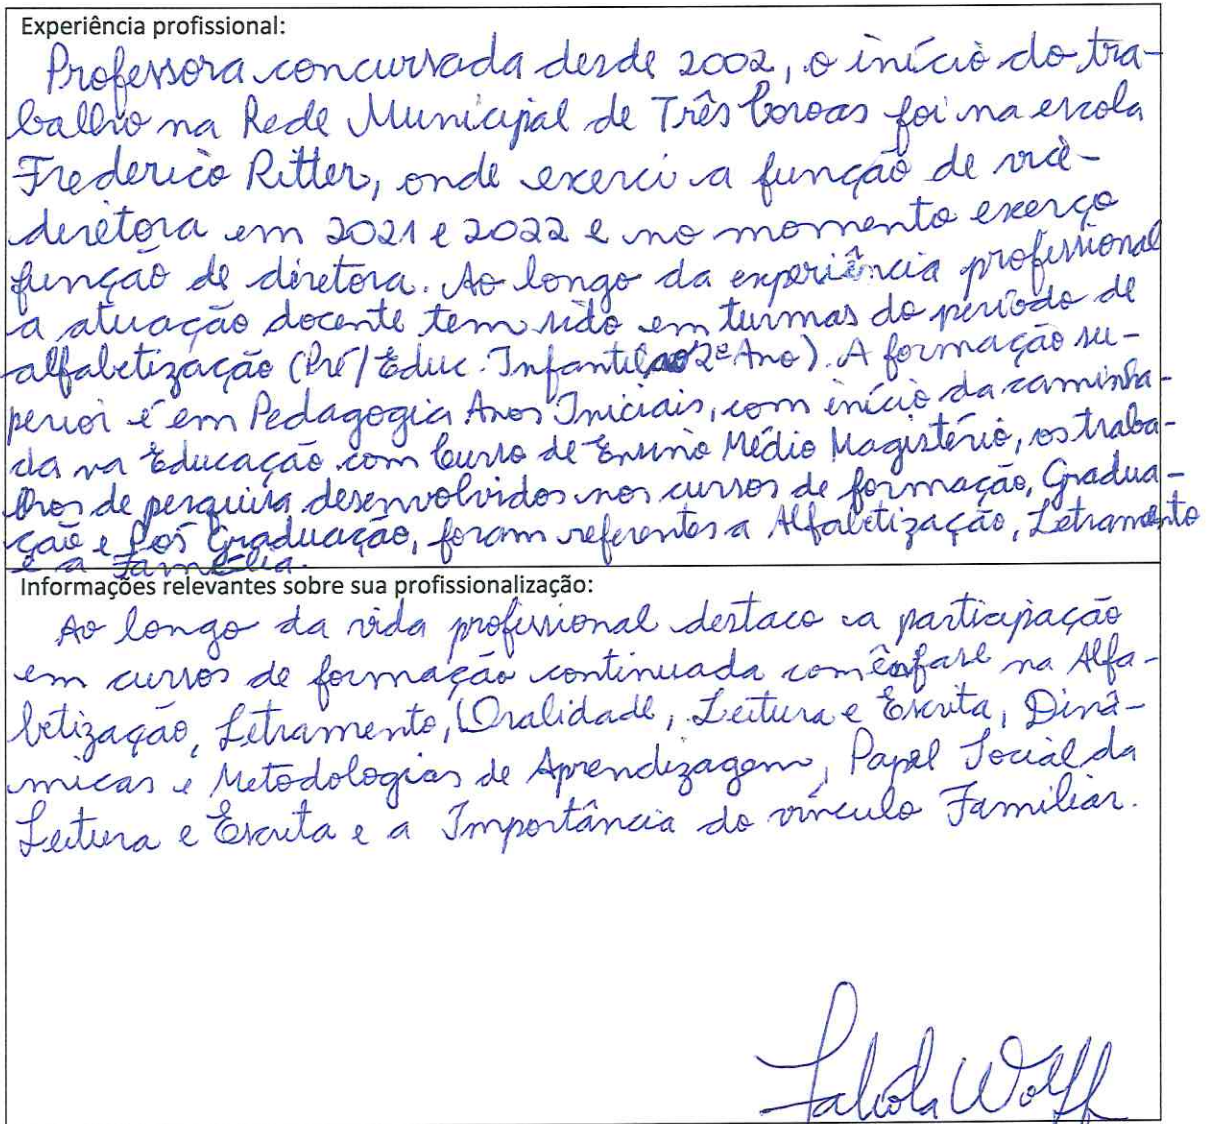 Experiência profissional:
Professora concursada desde 2002, o início do tra-
balho na Rede Municipal de Três Coroas foi na escola
Frederico Ritter, onde exerci a função de vice-
diretora em 2021 e 2022 e no momento exerço
função de diretora. Ao longo da experiência profissional
a atuação docente tem sido em turmas do período de
alfabetização (Pré/Educ. Infantil ao 2º Ano). A formação su-
perior é em Pedagogia Anos Iniciais, com início da caminha-
da na Educação com Curso de Ensino Médio Magistério, os traba-
lhos de pesquisa desenvolvidos nos cursos de formação, Gradua-
ção e Pós Graduação, foram referentes a Alfabetização, Letramento
e a Família.
Informações relevantes sobre sua profissionalização:
Ao longo da vida profissional destaco a participação
em cursos de formação continuada com ênfase na Alfa-
betização, Letramento, Oralidade, Leitura e Escrita, Dinâ-
micas e Metodologias de Aprendizagem, Papel Social da
Leitura e Escrita e a Importância do vínculo Familiar.
Fabíola Wolff